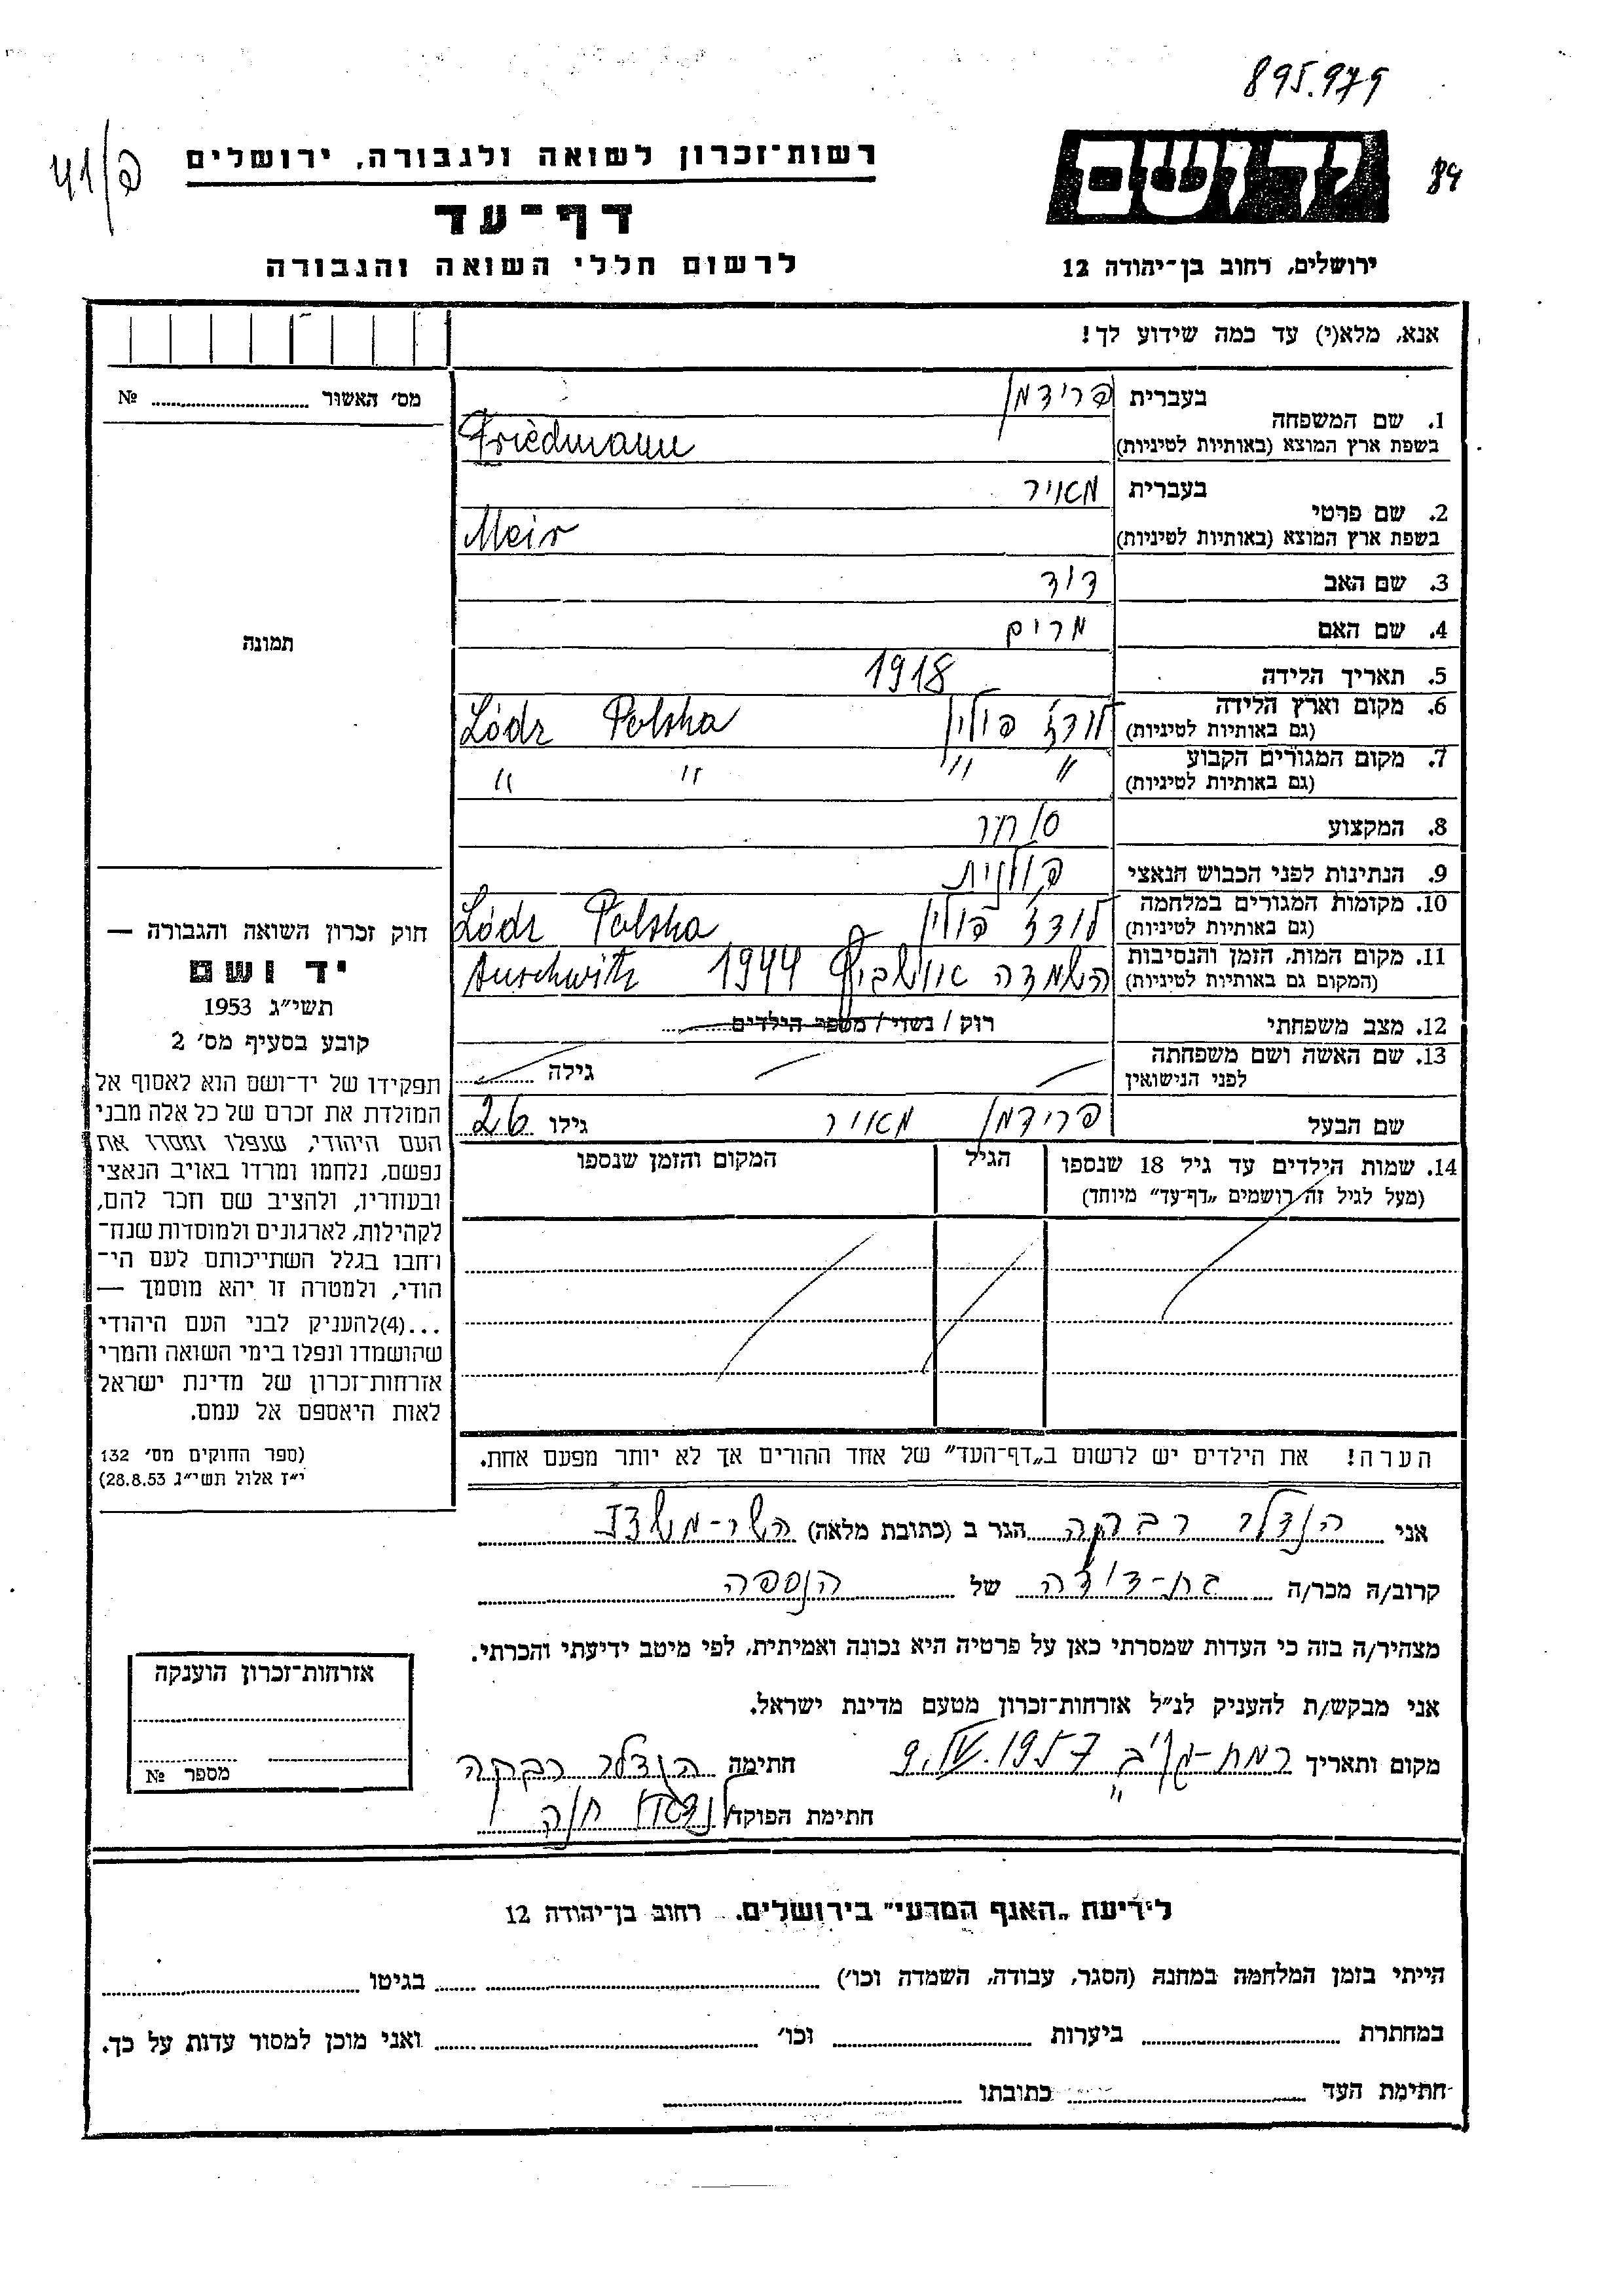 895.979
84
פ/41
יד ושם
ירושלים, רחוב בן־יהודה 12
רשות־זכרון לשואה ולגבורה, ירושלים
דף־עד
לרשום חללי השואה והגבורה
אנא, מלא(י) עד כמה שידוע לך!
מס׳ האשור № 
תמונה
1. שם המשפחה בעברית פרידמן
בשפת ארץ המוצא (באותיות לטיניות) Friedmann
2. שם פרטי בעברית מאיר
בשפת ארץ המוצא (באותיות לטיניות) Meir
3. שם האב דוד
4. שם האם מרים
5. תאריך הלידה 1918
6. מקום וארץ הלידה לודז פולין Lódz Polska
(גם באותיות לטיניות)
7. מקום המגורים הקבוע " " " "
(גם באותיות לטיניות)
8. המקצוע סוחר
9. הנתינות לפני הכבוש הנאצי פולנית
10. מקומות המגורים במלחמה לודז פולין Lódz Polska
(גם באותיות לטיניות)
11. מקום המות, הזמן והנסיבות השמדה אושביץ 1944 Auschwitz
(המקום גם באותיות לטיניות)
12. מצב משפחתי רוק / נשוי / מספר הילדים
13. שם האשה ושם משפחתה גילה
לפני הנישואין
שם הבעל פרידמן מאיר גילו 26
14. שמות הילדים עד גיל 18 שנספו הגיל המקום והזמן שנספו
(מעל לגיל זה רושמים „דף־עד״ מיוחד)
הערה! את הילדים יש לרשום ב„דף־העד״ של אחד ההורים אך לא יותר מפעם אחת.
חוק זכרון השואה והגבורה —
יד ושם
תשי״ג 1953
קובע בסעיף מס׳ 2
תפקידו של יד־ושם הוא לאסוף אל
המולדת את זכרם של כל אלה מבני
העם היהודי, שנפלו ומסרו את
נפשם, נלחמו ומרדו באויב הנאצי
ובעוזריו, ולהציב שם וזכר להם,
לקהילות, לארגונים ולמוסדות שנח־
רבו בגלל השתייכותם לעם הי־
הודי, ולמטרה זו יהא מוסמך —
...(4)להעניק לבני העם היהודי
שהושמדו ונפלו בימי השואה והמרי
אזרחות־זכרון של מדינת ישראל
לאות היאספם אל עמם.
(ספר החוקים מס׳ 132
י״ז אלול תשי״ג 28.8.53)
אני הנדלר רבקה הגר ב (כתובת מלאה)
קרוב/ה מכר/ה בת-דודה של הנספה
מצהיר/ה בזה כי העדות שמסרתי כאן על פרטיה היא נכונה ואמיתית, לפי מיטב ידיעתי והכרתי.
אני מבקש/ת להעניק לנ״ל אזרחות־זכרון מטעם מדינת ישראל.
מקום ותאריך 1957 חתימה הנדלר רבקה
חתימת הפוקד חנה
אזרחות־זכרון הוענקה
מספר №
לידיעת „האגף המדעי״ בירושלים. רחוב בן־יהודה 12
הייתי בזמן המלחמה במחנה (הסגר, עבודה, השמדה וכו׳) בגיטו
במחתרת ביערות וכו׳ ואני מוכן למסור עדות על כך.
חתימת העד כתובתו